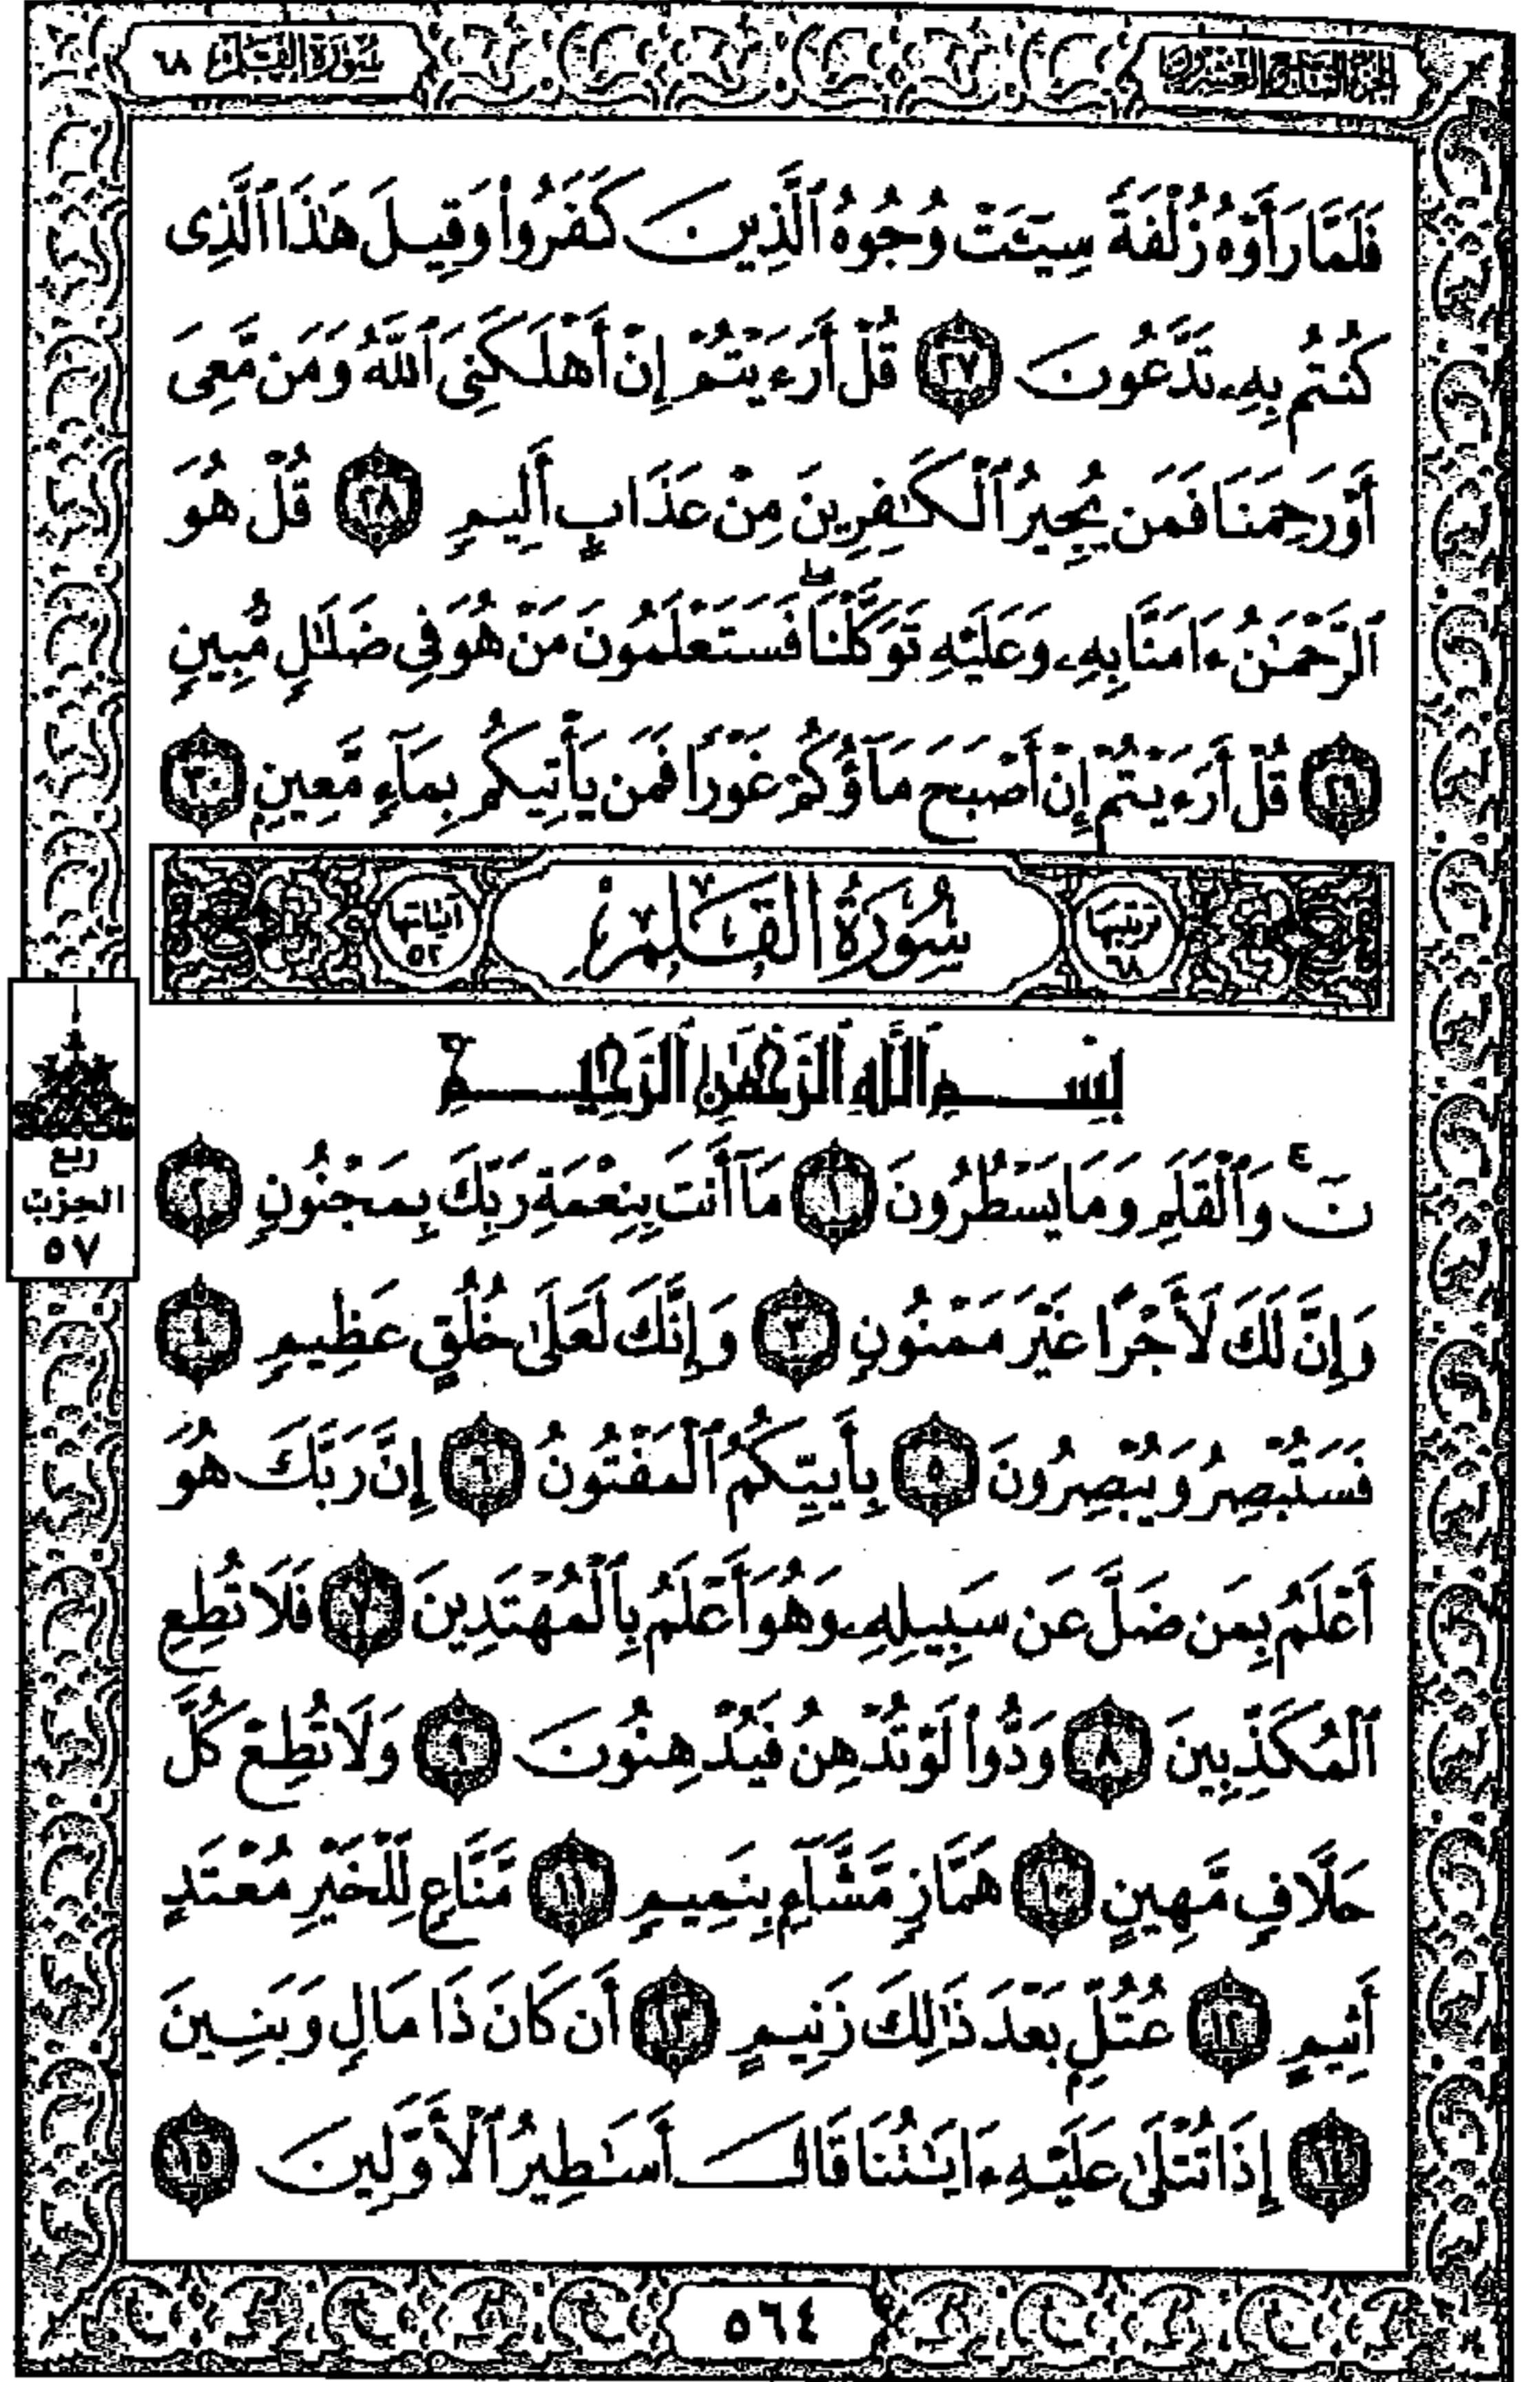 الجزء التاسع والعشرون
سورة القلم ٦٨
فَلَمَّا رَأَوْهُ زُلْفَةً سِيٓـَٔتْ وُجُوهُ ٱلَّذِينَ كَفَرُوا۟ وَقِيلَ هَٰذَا ٱلَّذِى
كُنتُم بِهِۦ تَدَّعُونَ ٢٧ قُلْ أَرَءَيْتُمْ إِنْ أَهْلَكَنِىَ ٱللَّهُ وَمَن مَّعِىَ
أَوْ رَحِمَنَا فَمَن يُجِيرُ ٱلْكَٰفِرِينَ مِنْ عَذَابٍ أَلِيمٍ ٢٨ قُلْ هُوَ
ٱلرَّحْمَٰنُ ءَامَنَّا بِهِۦ وَعَلَيْهِ تَوَكَّلْنَا ۖ فَسَتَعْلَمُونَ مَنْ هُوَ فِى ضَلَٰلٍ مُّبِينٍ
٢٩ قُلْ أَرَءَيْتُمْ إِنْ أَصْبَحَ مَآؤُكُمْ غَوْرًا فَمَن يَأْتِيكُم بِمَآءٍ مَّعِينٍۭ ٣٠
ترتيبها ٦٨
سُورَةُ القَلَمِ
آياتها ٥٢
بِسْمِ ٱللَّهِ ٱلرَّحْمَٰنِ ٱلرَّحِيمِ
نٓ ۚ وَٱلْقَلَمِ وَمَا يَسْطُرُونَ ١ مَآ أَنتَ بِنِعْمَةِ رَبِّكَ بِمَجْنُونٍ ٢
وَإِنَّ لَكَ لَأَجْرًا غَيْرَ مَمْنُونٍ ٣ وَإِنَّكَ لَعَلَىٰ خُلُقٍ عَظِيمٍ ٤
فَسَتُبْصِرُ وَيُبْصِرُونَ ٥ بِأَييِّكُمُ ٱلْمَفْتُونُ ٦ إِنَّ رَبَّكَ هُوَ
أَعْلَمُ بِمَن ضَلَّ عَن سَبِيلِهِۦ وَهُوَ أَعْلَمُ بِٱلْمُهْتَدِينَ ٧ فَلَا تُطِعِ
ٱلْمُكَذِّبِينَ ٨ وَدُّوا۟ لَوْ تُدْهِنُ فَيُدْهِنُونَ ٩ وَلَا تُطِعْ كُلَّ
حَلَّافٍ مَّهِينٍ ١٠ هَمَّازٍ مَّشَّآءٍۭ بِنَمِيمٍ ١١ مَّنَّاعٍ لِّلْخَيْرِ مُعْتَدٍ
أَثِيمٍ ١٢ عُتُلٍّۭ بَعْدَ ذَٰلِكَ زَنِيمٍ ١٣ أَن كَانَ ذَا مَالٍ وَبَنِينَ
١٤ إِذَا تُتْلَىٰ عَلَيْهِ ءَايَٰتُنَا قَالَ أَسَٰطِيرُ ٱلْأَوَّلِينَ ١٥
ربع
الحزب
٥٧
٥٦٤